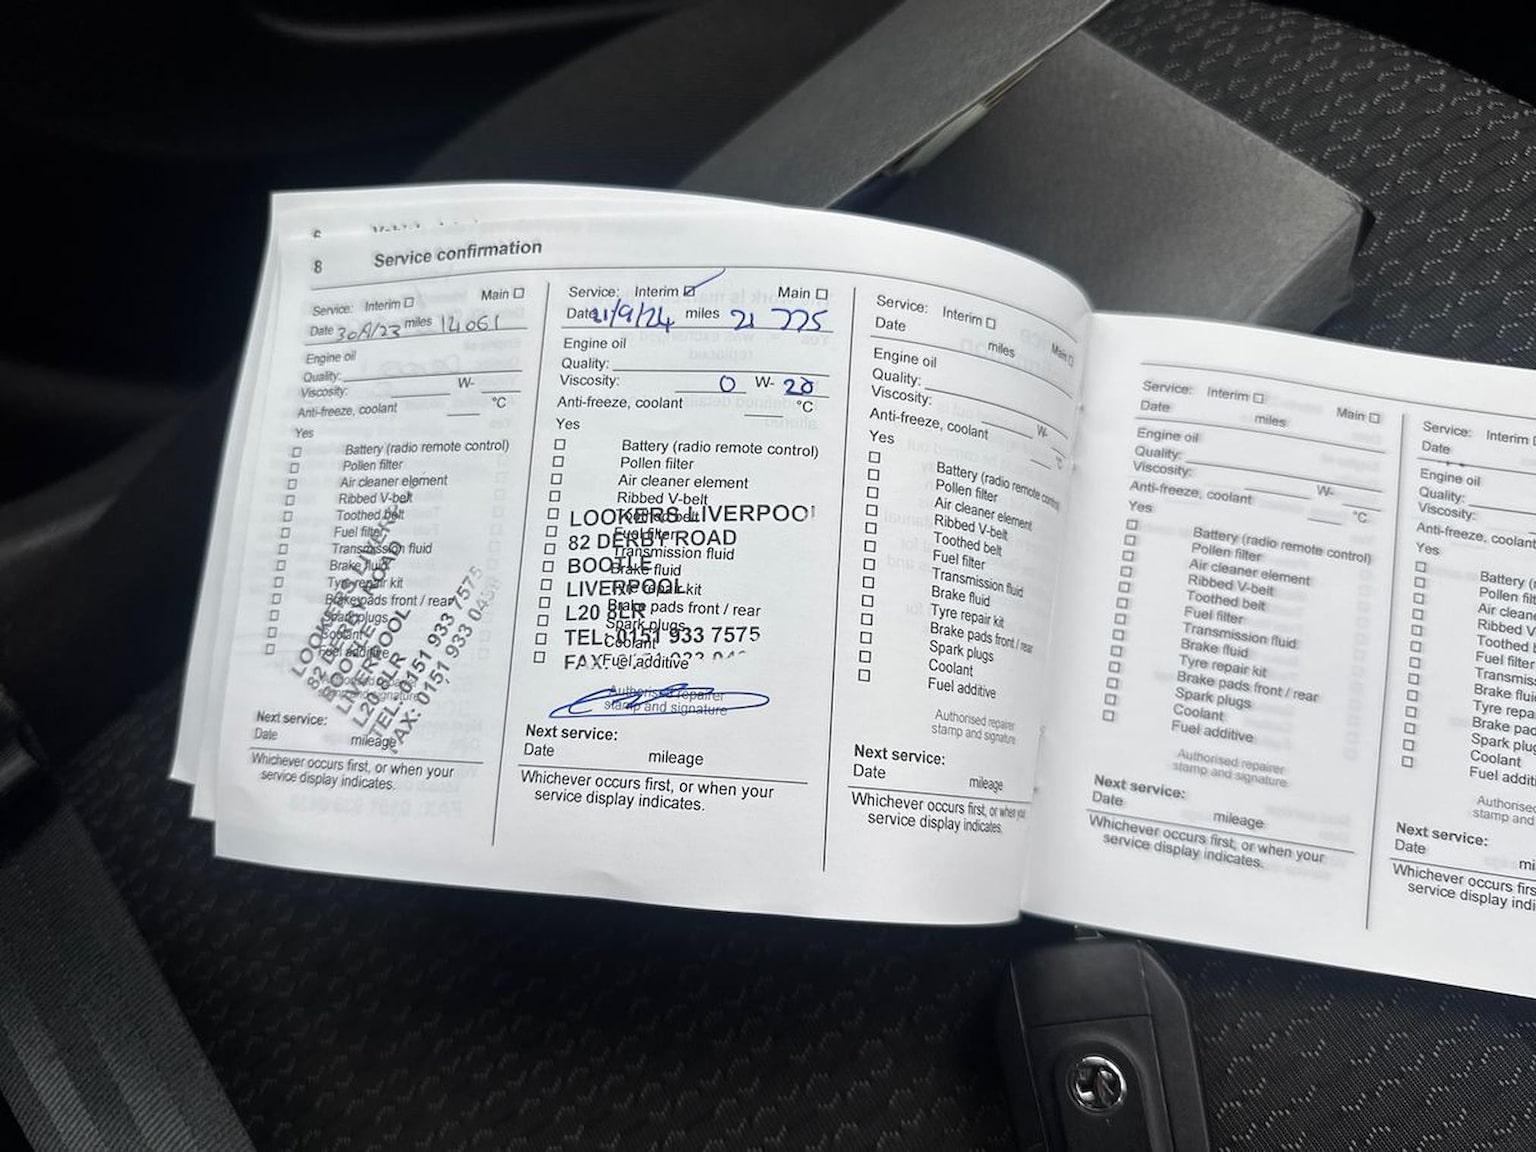 8 Service confirmation
Service: Interim Main
Date 30/1/23 miles 14061
Engine oil
Quality:
Viscosity: W-
Anti-freeze, coolant °C
Yes
Battery (radio remote control)
Pollen filter
Air cleaner element
Ribbed V-belt
Toothed belt
Fuel filter
Transmission fluid
Brake fluid
Tyre repair kit
Brake pads front / rear
Spark plugs
Coolant
Fuel additive
LOOKERS LIVERPOOL
82 DERBY ROAD
BOOTLE
LIVERPOOL
L20 8LR
TEL: 0151 933 7575
FAX: 0151 933
Next service:
Date mileage
Whichever occurs first, or when your
service display indicates.
Service: Interim ✓ Main
Date 21/9/24 miles 21 775
Engine oil
Quality:
Viscosity: 0 W- 20
Anti-freeze, coolant °C
Yes
Battery (radio remote control)
Pollen filter
Air cleaner element
Ribbed V-belt
Toothed belt
Fuel filter
Transmission fluid
Brake fluid
Tyre repair kit
Brake pads front / rear
Spark plugs
Coolant
Fuel additive
LOOKERS LIVERPOOL
82 DERBY ROAD
BOOTLE
LIVERPOOL
L20 8LR
TEL: 0151 933 7575
FAX:
Authorised repairer
stamp and signature
Next service:
Date mileage
Whichever occurs first, or when your
service display indicates.
Service: Interim Main
Date miles
Engine oil
Quality:
Viscosity: W-
Anti-freeze, coolant °C
Yes
Battery (radio remote control)
Pollen filter
Air cleaner element
Ribbed V-belt
Toothed belt
Fuel filter
Transmission fluid
Brake fluid
Tyre repair kit
Brake pads front / rear
Spark plugs
Coolant
Fuel additive
Authorised repairer
stamp and signature
Next service:
Date mileage
Whichever occurs first, or when your
service display indicates.
Service: Interim Main
Date miles
Engine oil
Quality:
Viscosity: W-
Anti-freeze, coolant °C
Yes
Battery (radio remote control)
Pollen filter
Air cleaner element
Ribbed V-belt
Toothed belt
Fuel filter
Transmission fluid
Brake fluid
Tyre repair kit
Brake pads front / rear
Spark plugs
Coolant
Fuel additive
Authorised repairer
stamp and signature
Next service:
Date mileage
Whichever occurs first, or when your
service display indicates.
Service: Interim
Date
Engine oil
Quality:
Viscosity:
Anti-freeze, coolant
Yes
Battery (r
Pollen filt
Air cleane
Ribbed V
Toothed b
Fuel filter
Transmiss
Brake flui
Tyre repa
Brake pad
Spark plug
Coolant
Fuel additi
Authorised
stamp and
Next service:
Date mi
Whichever occurs first
service display indi